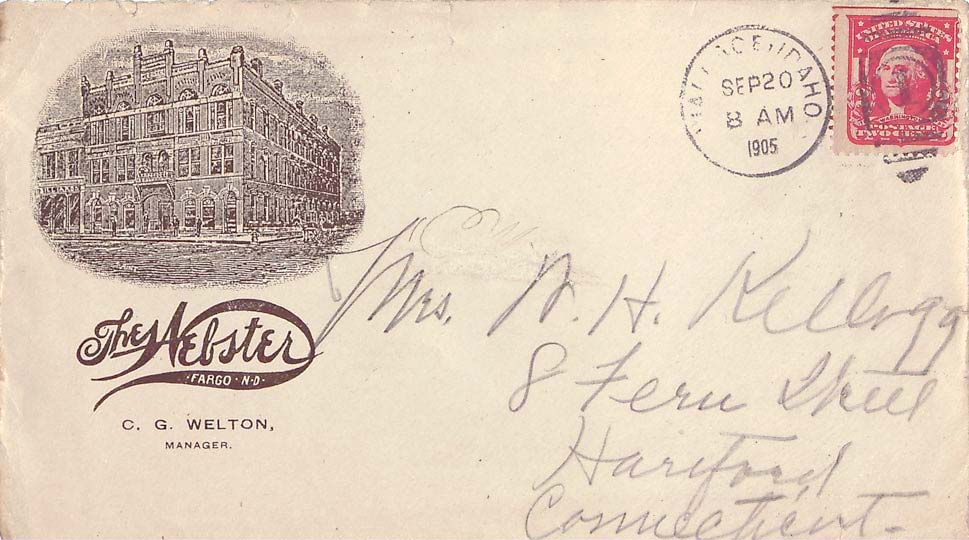 The Webster
FARGO · N·D·
C. G. WELTON,
MANAGER.
WALLACE, IDAHO
SEP 20
8 AM
1905
UNITED STATES
OF AMERICA
WASHINGTON
POSTAGE
Mrs. W. H. Kellogg
8 Fern Street
Hartford
Connecticut-